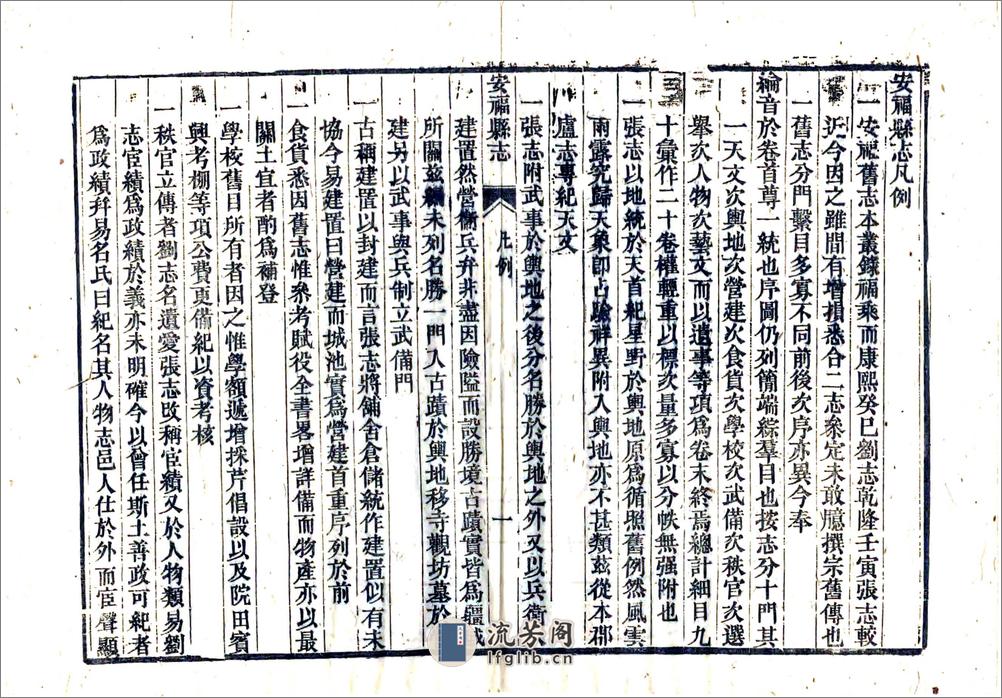 安福縣志凡例
一安福舊志本叢錄福乘而康熙癸巳劉志乾隆壬寅張志較
近今因之雖間有增損悉合二志叅定未敢臆撰宗舊傳也
一舊志分門繫目多寡不同前後次序亦異今奉
綸音於卷首尊一統也序圖仍列簡端綜羣目也按志分十門其
一天文次輿地次營建次食貨次學校次武備次秩官次選
舉次人物次藝文而以遺事等項爲卷末終焉總計細目九
十彙作二十卷權輕重以標次量多寡以分帙無强附也
一張志以地統於天首紀星野於輿地原爲循照舊例然風雲
雨露究歸天象即占驗祥異附入輿地亦不甚類茲從本郡
廬志專紀天文
一張志附武事於輿地之後分名勝於輿地之外又以兵衛入
安福縣志
凡例
一
建置然營衞兵弁非盡因險隘而設勝境古蹟實皆爲疆域
所關茲編未列名勝一門入古蹟於輿地移寺觀坊墓於
建另以武事與兵制立武備門
一古稱建置以封建而言張志將舖舍倉儲統作建置似有未
協今易建置曰營建而城池實爲營建首重序列於前
一食貨悉因舊志惟叅考賦役全書畧增詳備而物產亦以最
關土宜者酌爲補登
一學校舊目所有者因之惟學額遞增採芹倡設以及院田賓
興考棚等項公費更備紀以資考核
一秩官立傳者劉志名遺愛張志改稱宦績又於人物類易劉
志宦績爲政績於義亦未明確今以曾任斯土善政可紀者
爲政績幷易名氏曰紀名其人物志邑人仕於外而宦聲顯
流芳阁
lfglib.cn